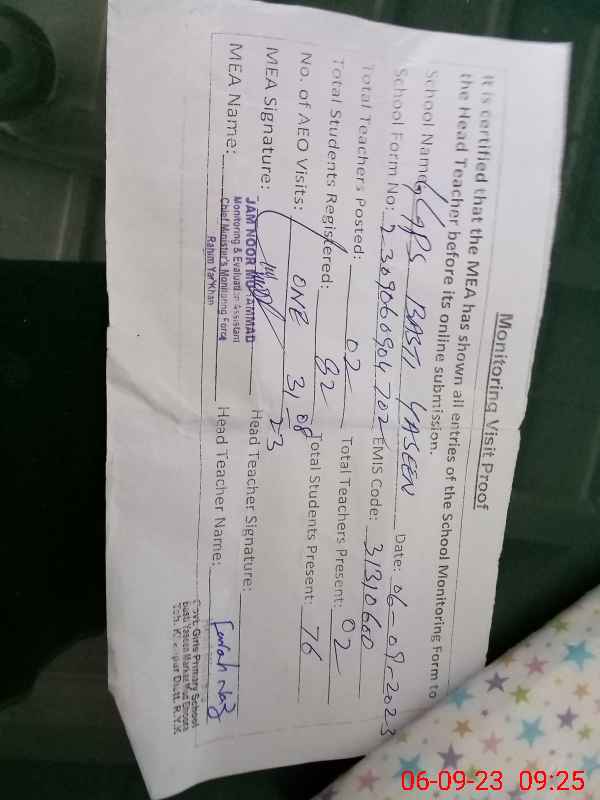 Monitoring Visit Proof
It is certified that the MEA has shown all entries of the School Monitoring Form to
the Head Teacher before its online submission.
School Name: GGPS BASTI YASEEN Date: 06-09-2023
School Form No: 2-309060904702 EMIS Code: 31310600
Total Teachers Posted: 02 Total Teachers Present: 02
Total Students Registered: 82 Total Students Present: 76
No. of AEO Visits: ONE 31/08/23
MEA Signature: Head Teacher Signature:
MEA Name: Head Teacher Name: Farah Naz
JAM NOOR MUHAMMAD
Monitoring & Evaluation Assistant
Chief Minister's Monitoring Force
Rahim Yar Khan
Govt. Girls Primary School
Basti Yaseen
Teh. R.Y.K
06-09-23 09:25